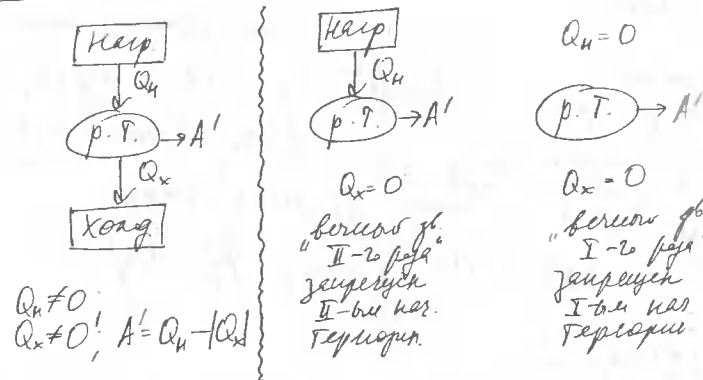 Нагр
Qн
р. Т. → A'
Qх
Холод
Qн ≠ 0
Qх ≠ 0!, A' = Qн − |Qх|
Нагр
Qн
р. Т. → A'
Qх = 0
"вечный дв.
II-го рода"
запрещен
II-ым нач.
термодин.
Qн = 0
р. Т. → A'
Qх = 0
"вечный дв
I-го рода
запрещен
I-ым нач